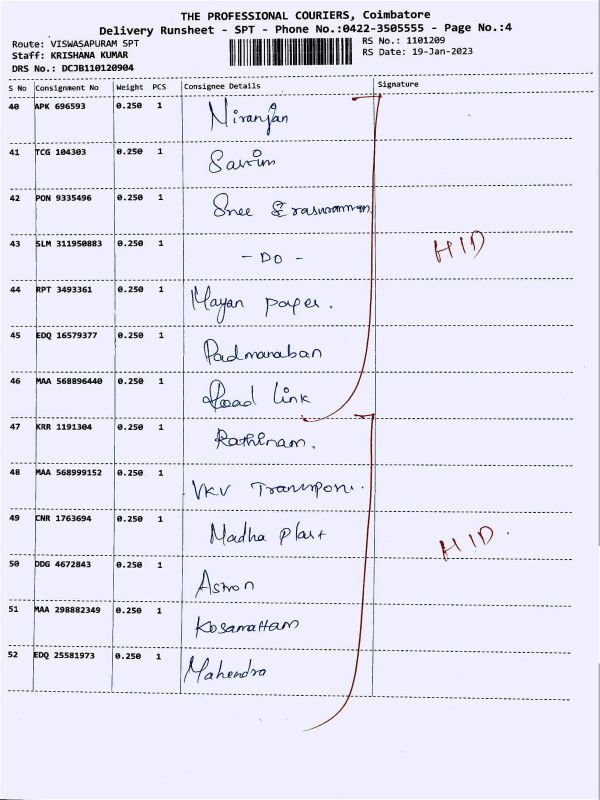 THE PROFESSIONAL COURIERS, Coimbatore
Delivery Runsheet - SPT - Phone No.:0422-3505555 - Page No.:4
Route: VISWASAPURAM SPT
RS No.: 1101209
Staff: KRISHANA KUMAR
RS Date: 19-Jan-2023
DRS No.: DCJB110120904
S No Consignment No Weight PCS Consignee Details Signature
40 APK 696593 0.250 1 Niranjan
41 TCG 104303 0.250 1
42 PON 9335496 0.250 1 Sree
43 SLM 311950883 0.250 1 - DO - HID
44 RPT 3493361 0.250 1 Mayan paper.
45 EDQ 16579377 0.250 1 Padmanaban
46 MAA 568896440 0.250 1 Road Link
47 KRR 1191304 0.250 1 Rathinam.
48 MAA 568999152 0.250 1 VKV
49 CNR 1763694 0.250 1 Madha Plast HID.
50 DDG 4672843 0.250 1 Astron
51 MAA 298882349 0.250 1 Kosamattam
52 EDQ 25581973 0.250 1 Mahendra